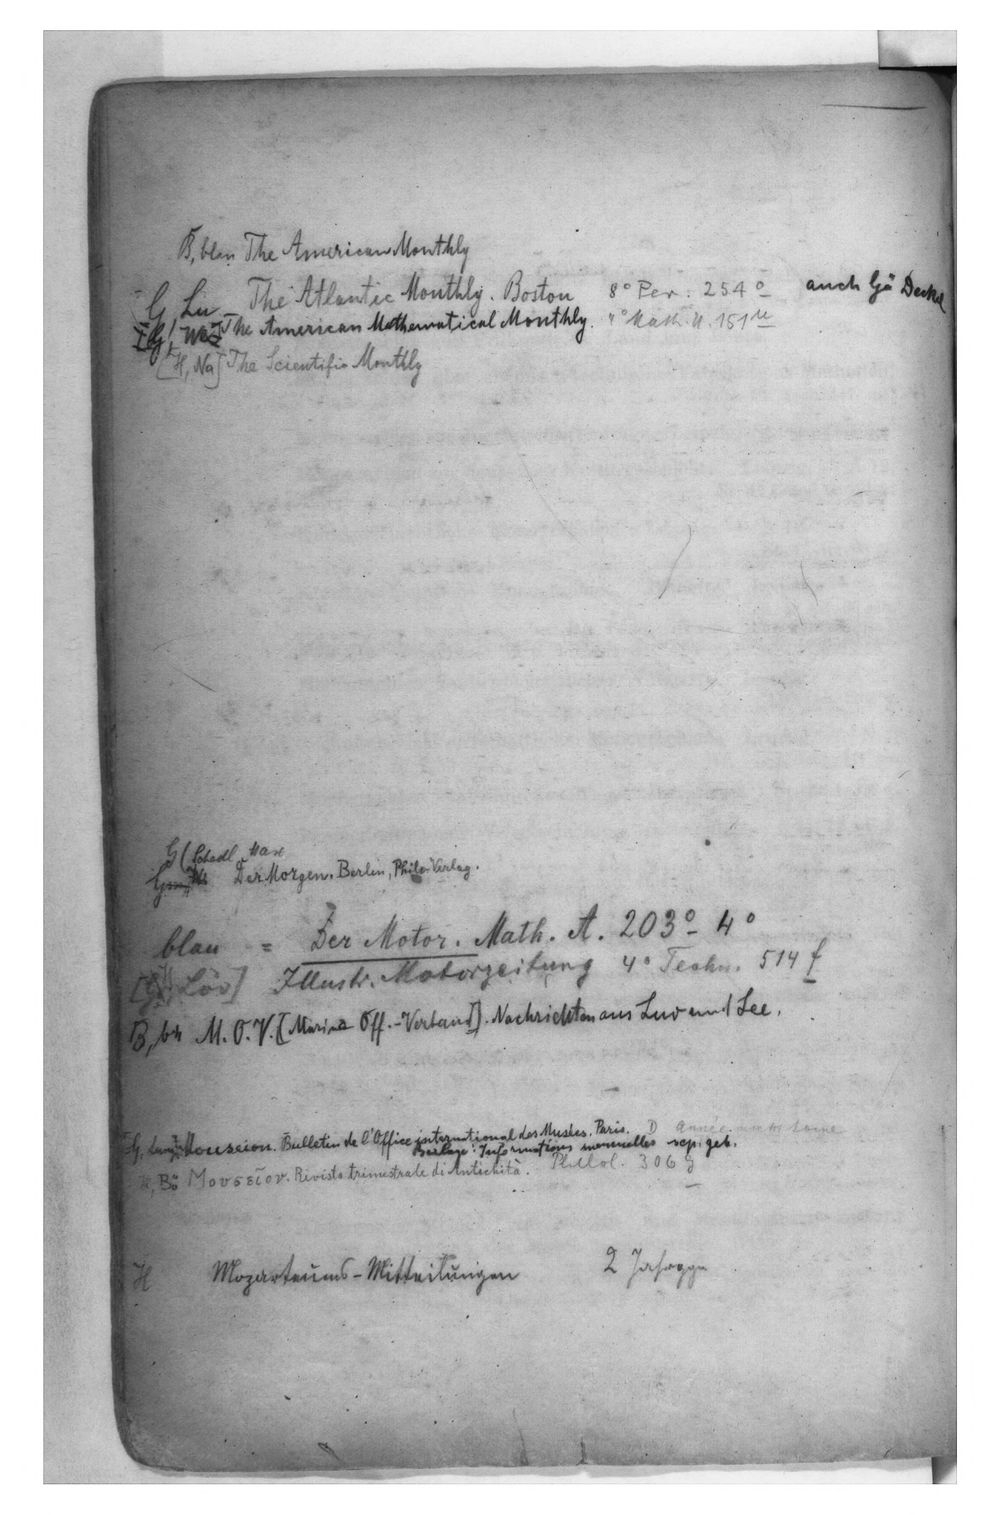 B, blau The American Monthly
G Lu The Atlantic Monthly. Boston 8° Per. 254° auch Gö Deckel
The American Mathematical Monthly. 4° Math. 151
[H, Na] The Scientific Monthly
G (Schedl
Der Morgen. Berlin, Philo-Verlag.
blau = Der Motor. Math. A. 203° 4°
[G, Löv] Illustr. Motorzeitung 4° Techn. 514 f
B, br M. O. V. [Marine Off.-Verband]. Nachrichten aus Luv und Lee.
G, Mouseion. Bulletin de l'Office international des Musées. Paris. D
Beilage: Informations mensuelles sep. geb.
H, Bö Μουσεῖον. Rivista trimestrale di Antichità. Philol. 306 g
H Mozarteums-Mitteilungen 2 Jahrgge